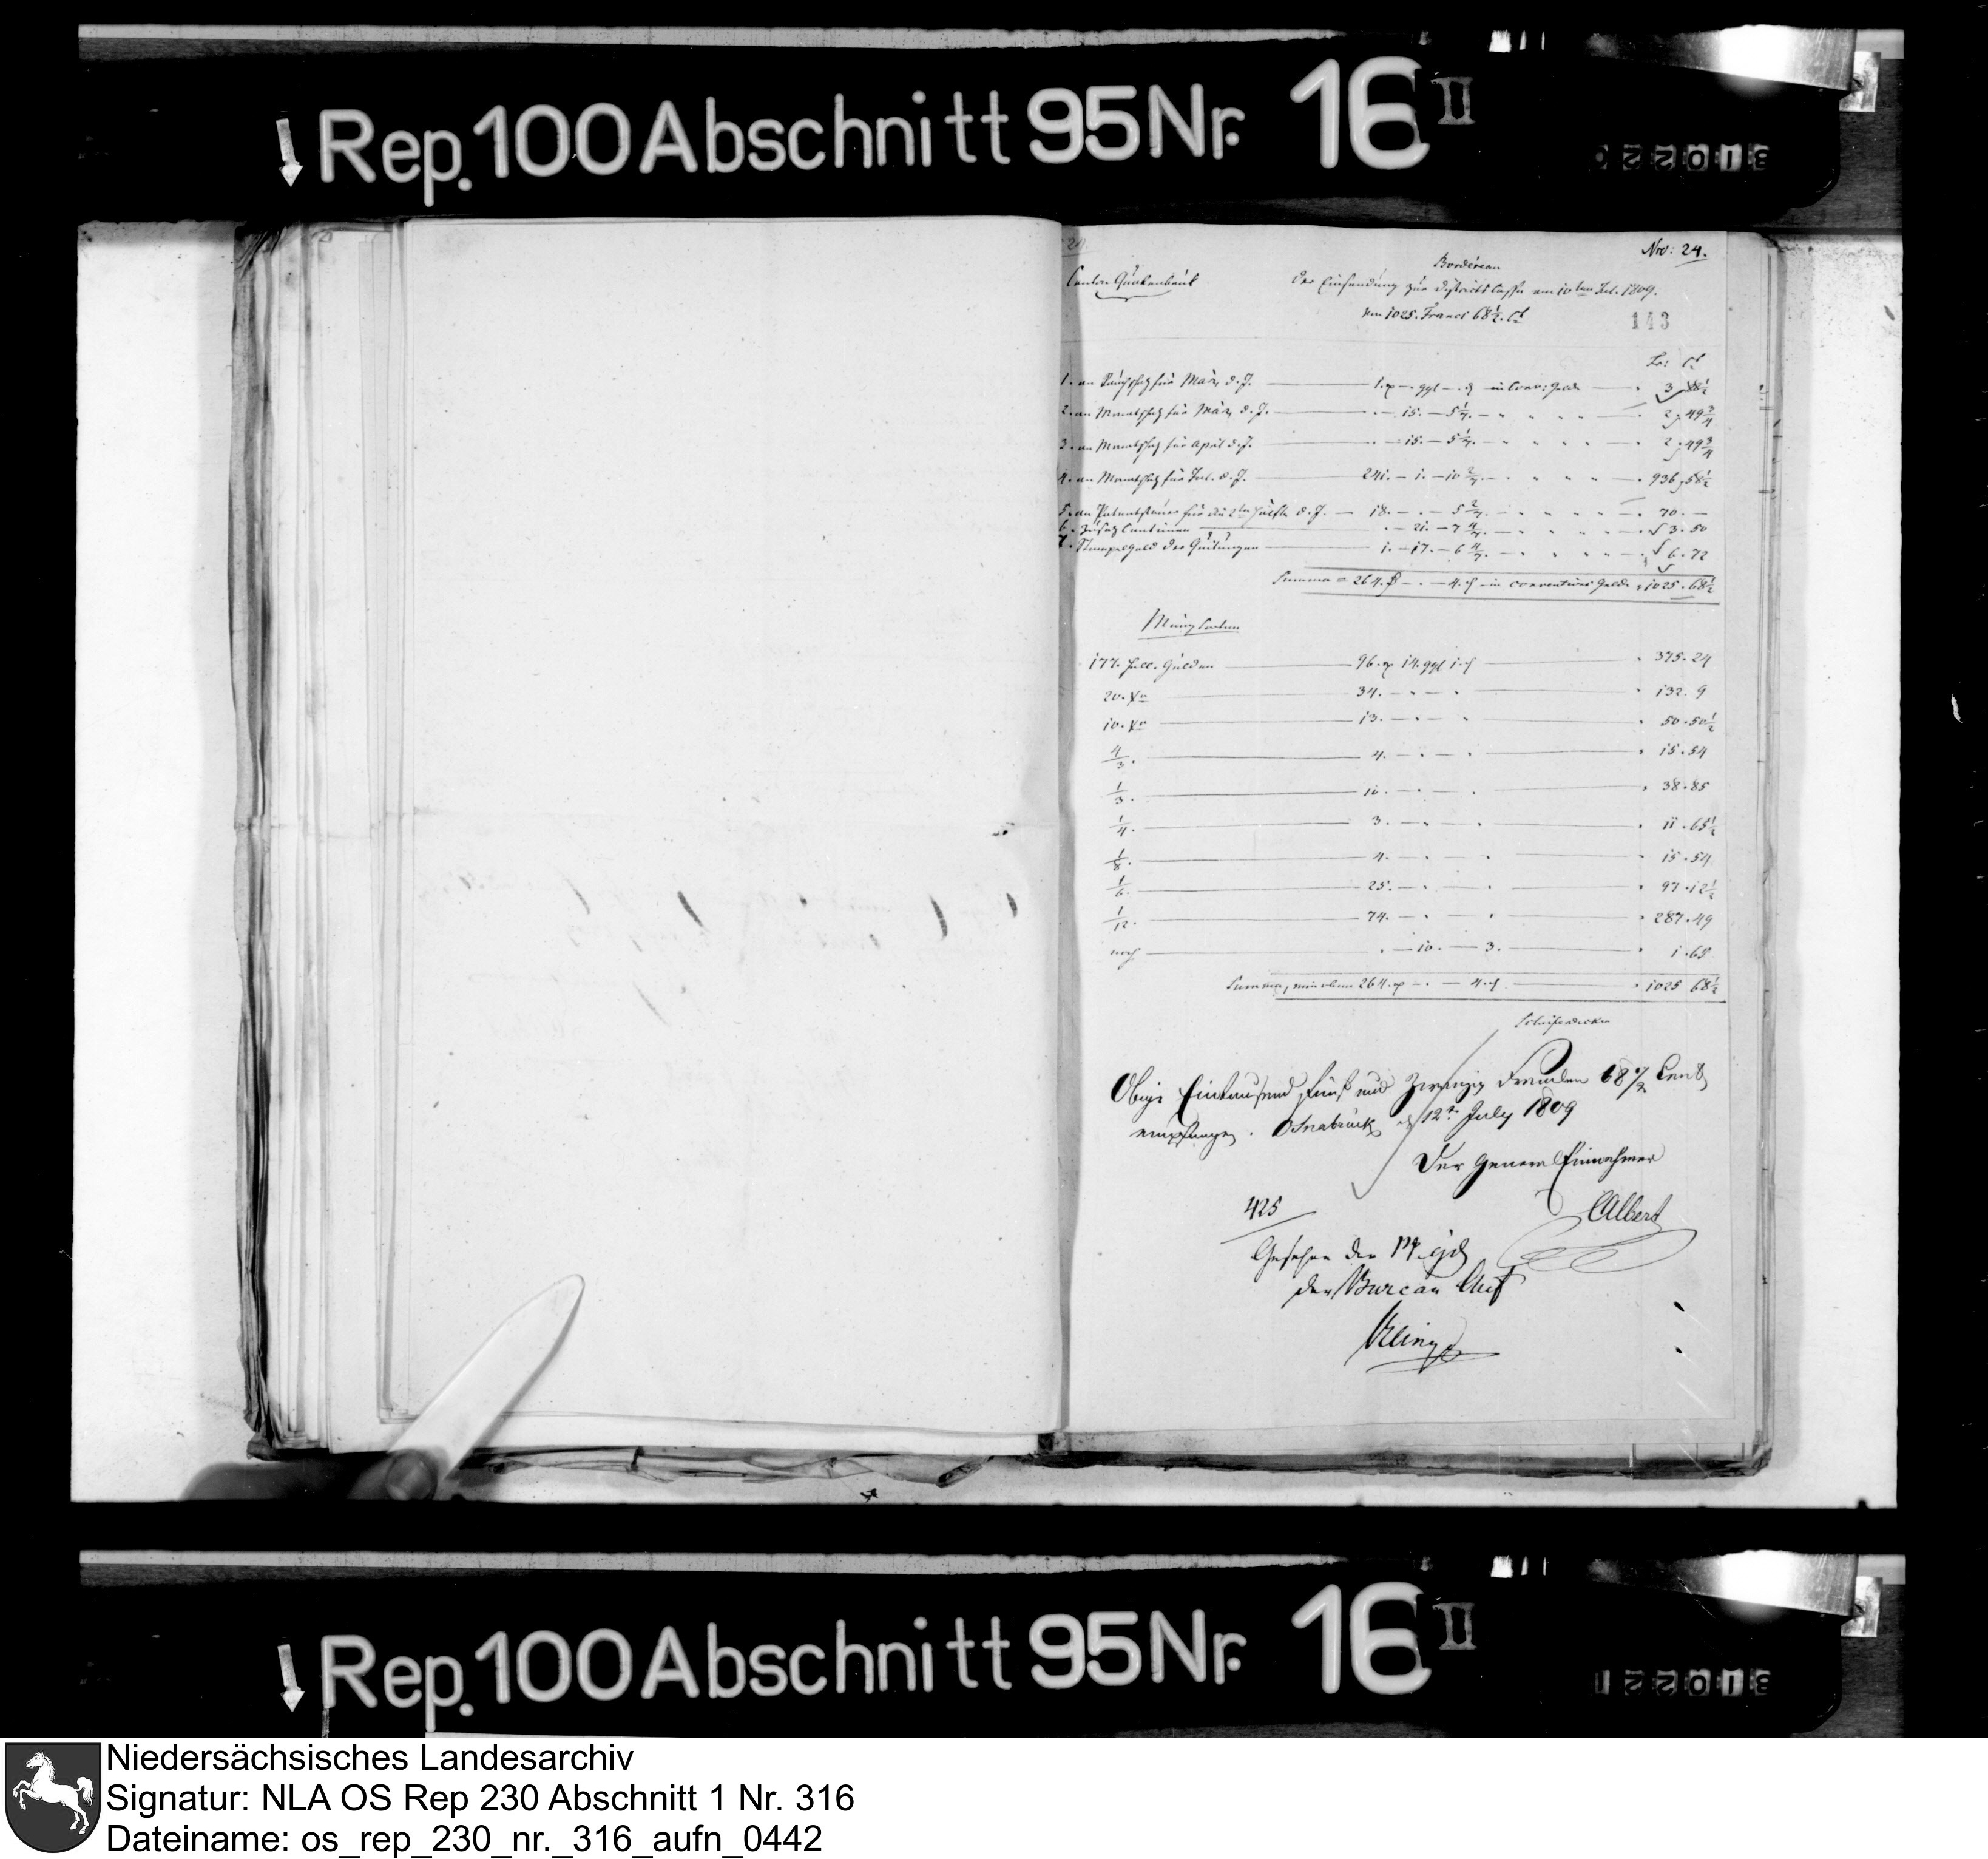 Rep. 100 Abschnitt 95 Nr. 16 II
310220
24.
Nro: 24.
Canton Quakenbrük
Bordereau
der Einsendung zur Districts Casse am 10ten Jul. 1809.
von 1025. Francs 68½. Ct
143
Fr: Ct
1. an für März d. J. — 1. — ggl — . in Conv: Gelde — 3. 88½
2. an Monatschatz für März d. J. — . — 15. — 5 1/7. — 2. 49¾
3. an Monatschatz für April d. J. — . — 15. — 5 1/7. — 2. 49¾
4. an Monatschatz für Jul. d. J. — 241. — 1. — 10 2/7. — 936. 58½
5. an Patentsteuer für die 2te Hälfte d. J. — 18. — . — 5 2/7. — 70. —
6. Zusatz Centimen — . — 21. — 7 4/7. — 3. 50
7. Stempelgeld der Quitungen — 1. — 17. — 6 4/7. — 6. 72
Summa = 264. — . — 4. in Conventions Gelde 1025. 68½
Münz Sorten
177. holl. Gulden — 96. 14. ggl 1. — 375. 24
20. Xr — 34. — . — . — 132. 9
10. Xr — 13. — . — . — 50. 50½
4/3. — 4. — . — . — 15. 54
1/3. — 10. — . — . — 38. 85
1/4. — 3. — . — . — 11. 65½
1/8. — 4. — . — . — 15. 54
1/6. — 25. — . — . — 97. 12½
1/12. — 74. — . — . — 287. 49
noch — . — 10. — 3. — 1. 68
Summa, wie oben 264. — . — 4. — 1025 68½
Obige Eintausend fünf und Zwanzig Franken 68½ Cent
empfangen. Osnabrück 12t July 1809
Der General Einnehmer
CAlbert
425
Gesehen den
der Bureau Chef
Rep. 100 Abschnitt 95 Nr. 16 II
310221
Niedersächsisches Landesarchiv
Signatur: NLA OS Rep 230 Abschnitt 1 Nr. 316
Dateiname: os_rep_230_nr._316_aufn_0442